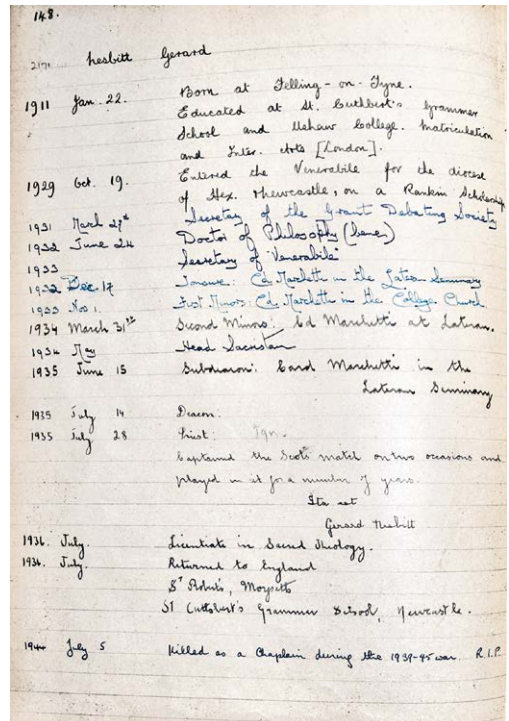 148.
2171 Nesbitt Gerard
1911 Jan. 22. Born at Felling-on-Tyne.
Educated at St. Cuthbert's Grammar
School and Ushaw College. Matriculation
and Inter. Arts [London].
1929 Oct. 19. Entered the Venerabile for the diocese
of Hex. Newcastle, on a Rankin Scholarship
1931 March 27th Secretary of the Grant Debating Society
1932 June 24 Doctor of Philosophy (bene)
1933 Secretary of 'Venerabile'
1932 Dec. 17 Tonsure: Cd Marchetti in the Lateran Seminary
1933 Nov 1. First Minors: Cd. Marchetti in the College Church
1934 March 31st Second Minors: Cd Marchetti at Lateran.
1934 May Head Sacristan
1935 June 15 Subdiacon: Card Marchetti in the
Lateran Seminary
1935 July 14 Deacon.
1935 July 28 Priest:
Captained the Scots match on two occasions and
played in it for a number of years.
Ita est
Gerard Nesbitt
1936. July. Licentiate in Sacred Theology.
1936. July. Returned to England
St Robert's, Morpeth
St Cuthbert's Grammar School, Newcastle.
1944 July 5 Killed as a Chaplain during the 1939-45 war. R.I.P.